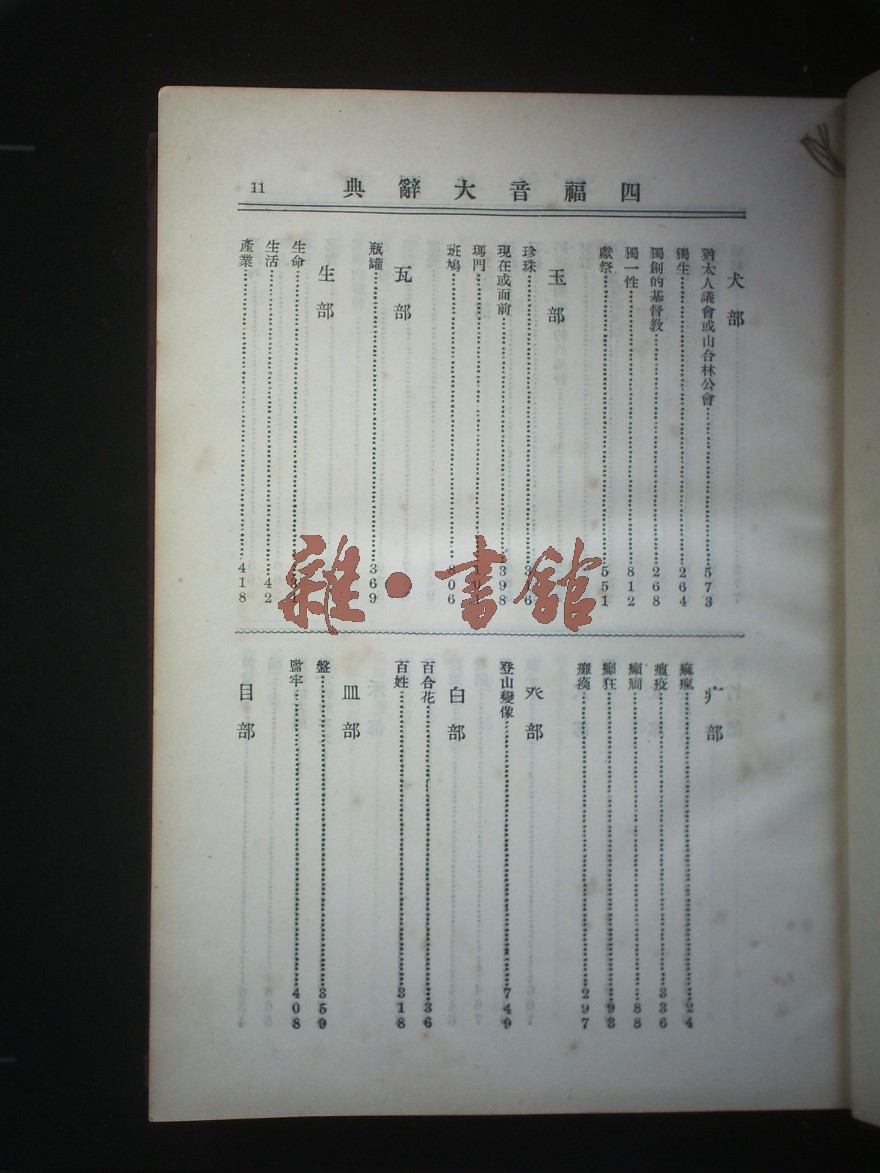 四福音大辭典 11
犬部
猶太人議會或山合林公會 573
獨生 264
獨創的基督教 268
獨一性 812
獻祭 551
玉部
珍珠
現在或面前 398
瑪門
斑鳩 806
瓦部
瓶罐 369
生部
生命
生活 42
產業 418
疒部
痲瘋 24
瘟疫 336
癲癇 88
癲狂 98
癱瘓 297
癶部
登山變像 749
白部
百合花 36
百姓 318
皿部
盤 359
監牢 408
目部
雜·書館